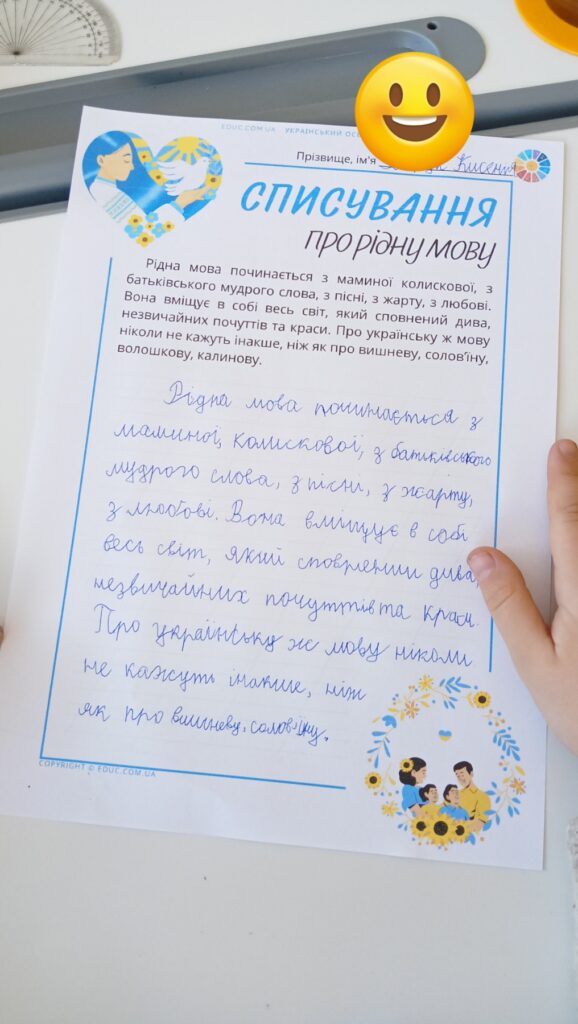 EDUC.COM.UA УКРАЇНСЬКИЙ ОСВ
Прізвище, ім'я Ксенія
СПИСУВАННЯ
про рідну мову
Рідна мова починається з маминої колискової, з
батьківського мудрого слова, з пісні, з жарту, з любові.
Вона вміщує в собі весь світ, який сповнений дива,
незвичайних почуттів та краси. Про українську ж мову
ніколи не кажуть інакше, ніж як про вишневу, солов’їну,
волошкову, калинову.
Рідна мова починається з
маминої, колискової, з батьківського
мудрого слова, з пісні, з жарту,
з любові. Вона вміщує в собі
весь світ, який сповнений дива
незвичайних почуттів та краси.
Про українську ж мову ніколи
не кажуть інакше, ніж
як про вишневу, солов'їну.
COPYRIGHT © EDUC.COM.UA